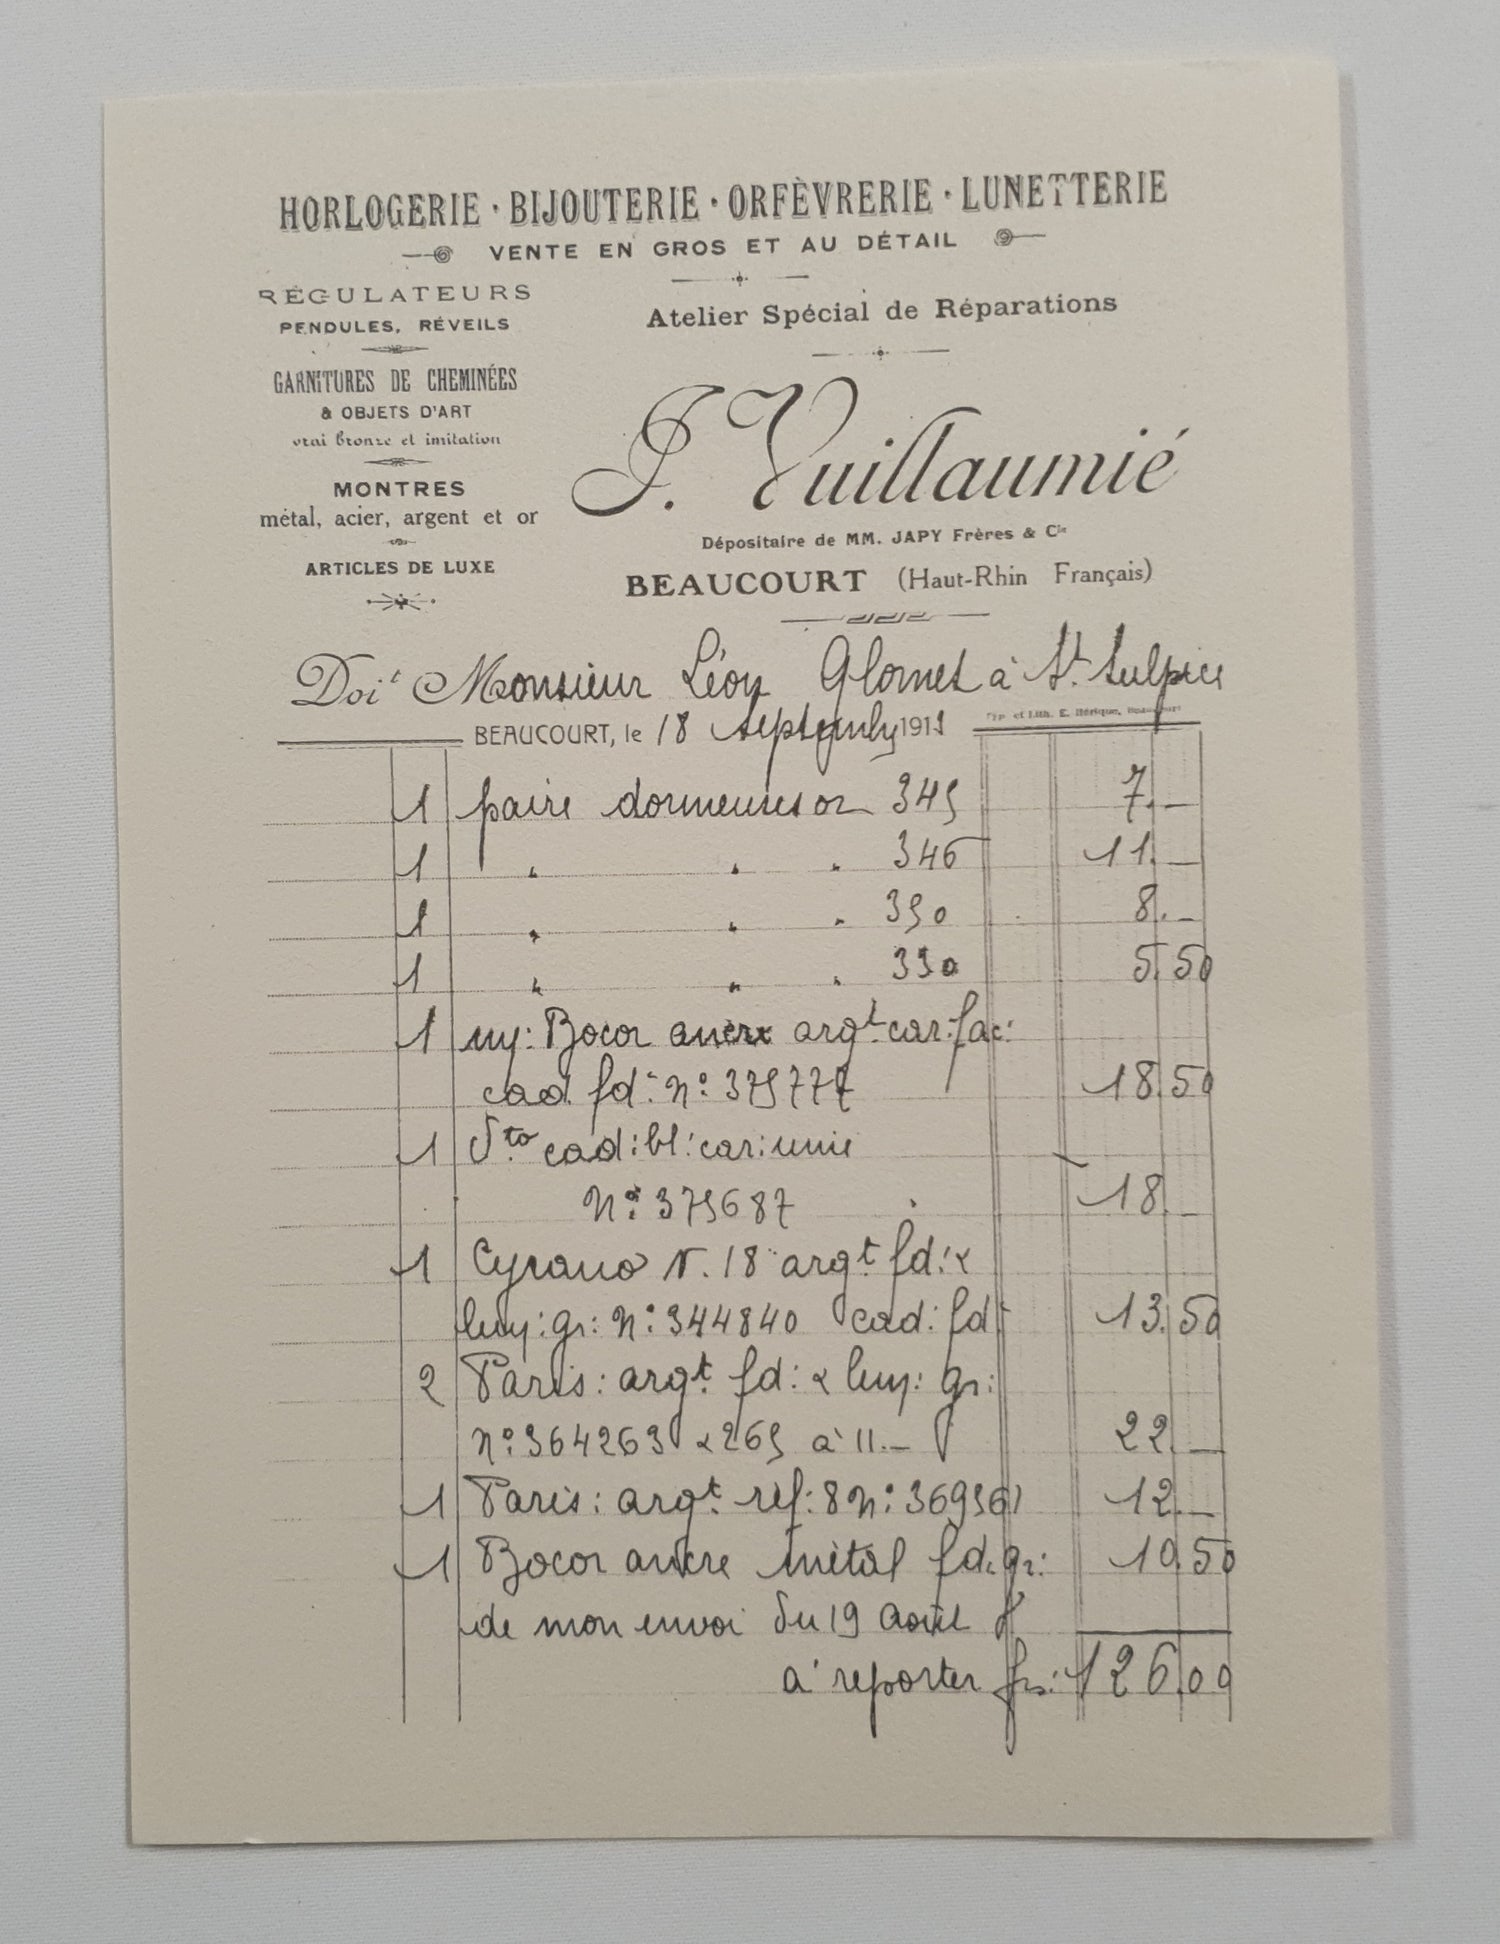 HORLOGERIE · BIJOUTERIE · ORFÈVRERIE · LUNETTERIE
VENTE EN GROS ET AU DÉTAIL
RÉGULATEURS
PENDULES, RÉVEILS
GARNITURES DE CHEMINÉES
& OBJETS D'ART
vrai bronze et imitation
MONTRES
métal, acier, argent et or
ARTICLES DE LUXE
Atelier Spécial de Réparations
J. Vuillaumié
Dépositaire de MM. JAPY Frères & Cie
BEAUCOURT (Haut-Rhin Français)
Doit Monsieur Léon Glomet à St. Sulpice
Typ. et Lith. E. Bérique, Beaucourt
BEAUCOURT, le 18 Septembre 1911
1 paire dormeuses or 345 7.—
1 " " " 346 11.—
1 " " " 350 8.—
1 " " " 330 5.50
1 Bocor ancre argt. car: fac:
cad. fd: No: 375777 18.50
1 Dto cad: bl: car: unie
No: 375687 18.—
1 Cyrano N. 18 argt. fd: &
No: 344840 cad: fd: 13.50
2 Paris: argt. fd: & gr:
No: 364263 & 265 à 11.— 22.—
1 Paris: argt. réf: 8 No: 369361 12.—
1 Bocor ancre métal fd: gr: 10.50
de mon envoi du 19 août
à reporter frs: 126.00